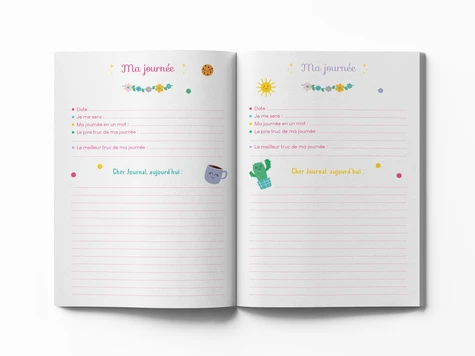 Ma journée
Date :
Je me sens :
Ma journée en un mot :
Le pire truc de ma journée :
Le meilleur truc de ma journée :
Cher Journal, aujourd'hui :
Ma journée
Date :
Je me sens :
Ma journée en un mot :
Le pire truc de ma journée :
Le meilleur truc de ma journée :
Cher Journal, aujourd'hui :